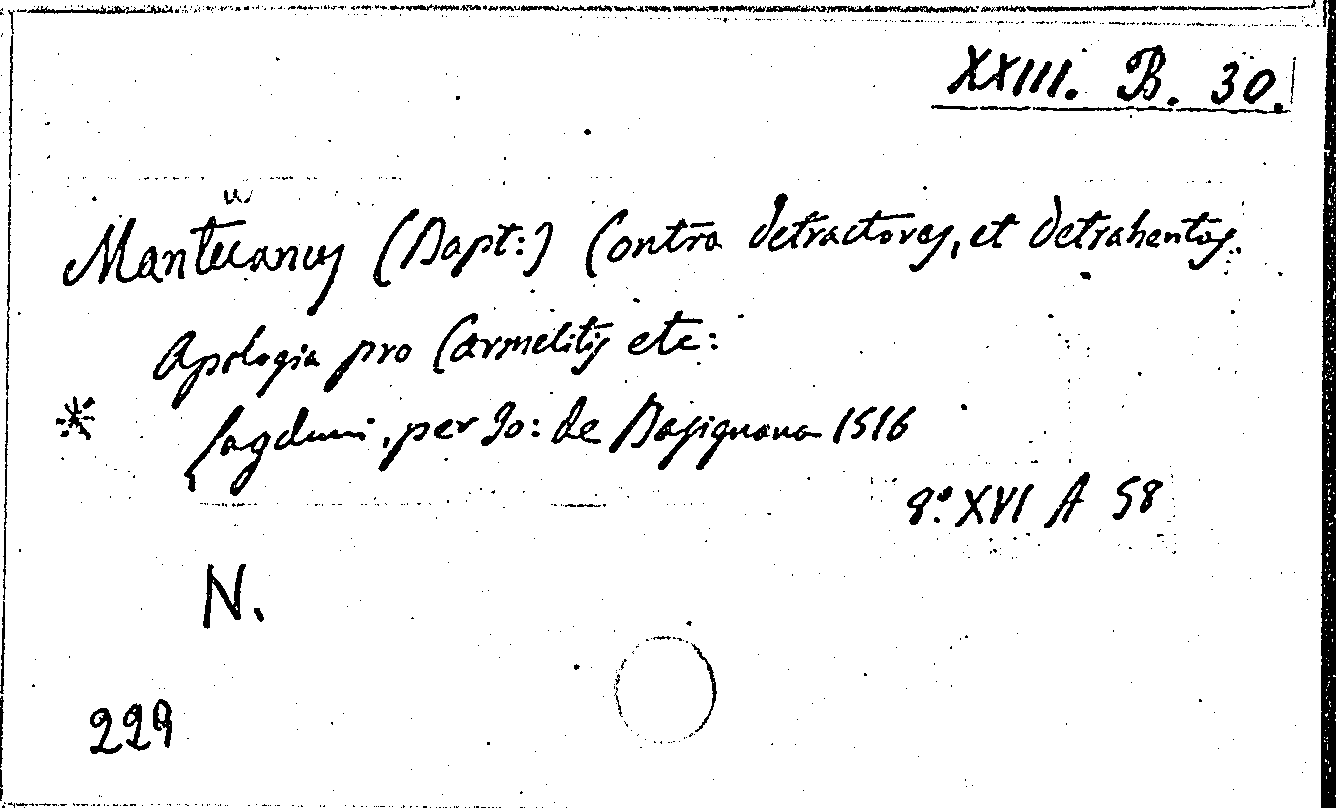 XXIII. B. 30.
u
Mantecanus (Bapt:) Contra detractores, et detrahentes.
Apologia pro Carmelitis etc:
* Lugduni, per Jo: de Basignana 1516
8.° XVI A 58
N.
229